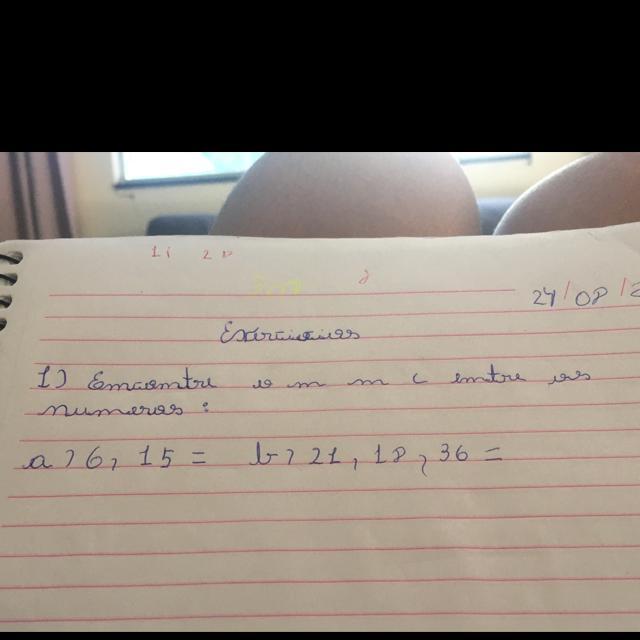 24/08/2
Exercicios
1) Encontre o m m c entre os
numeros:
a) 6, 15 = b) 21, 18, 36 =